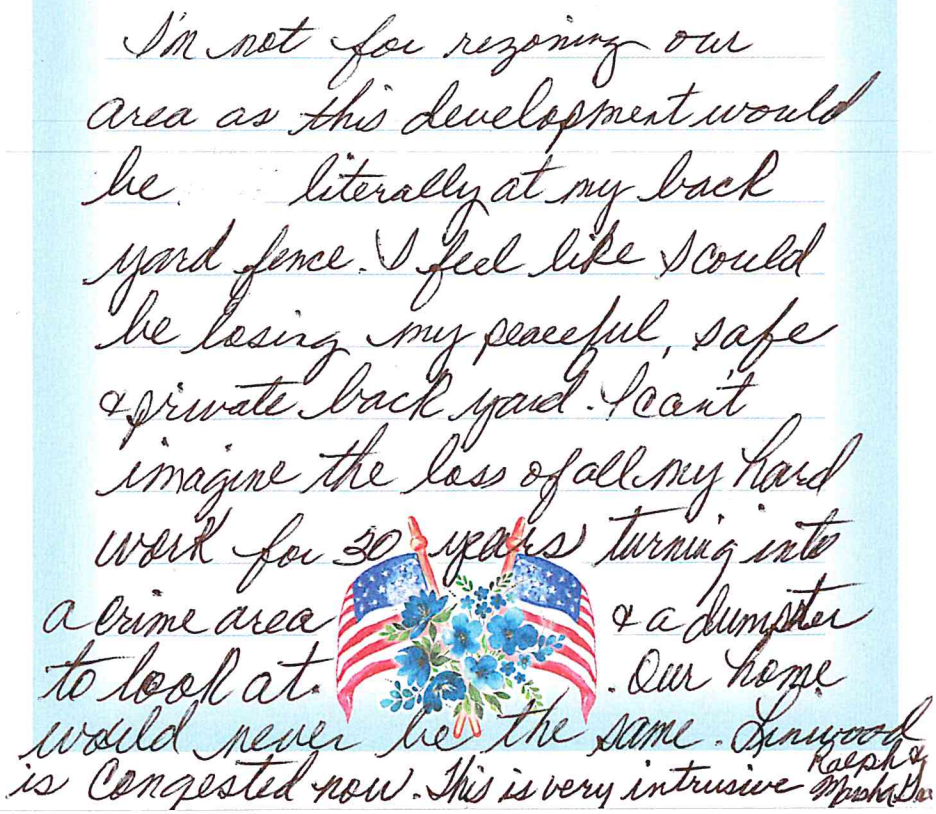 I'm not for rezoning our
area as this development would
be literally at my back
yard fence. I feel like I could
be losing my peaceful, safe
& private back yard. I can't
imagine the loss of all my hard
work for 30 years turning into
a crime area & a dumpster
to look at. . Our home
would never be the same. Linwood
is congested now. This is very intrusive
Ralph &
Marsha